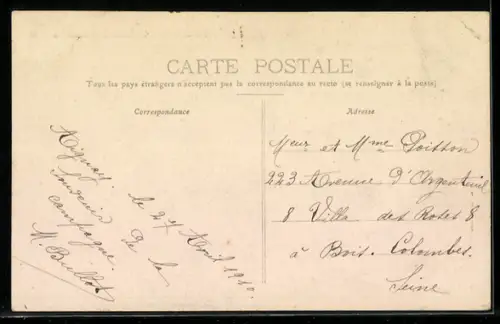 CARTE POSTALE
Tous les pays étrangers n'acceptent pas la correspondance au recto (se renseigner à la poste)
Correspondance
Adresse
Aignay. le 24 Avril 1910
Souvenir de la
campagne.
M. Buillot
Meur et Mme Poisson
223 Avenue d'Argenteuil
8 Villa des Roses 8
à Bois. Colombes.
Seine